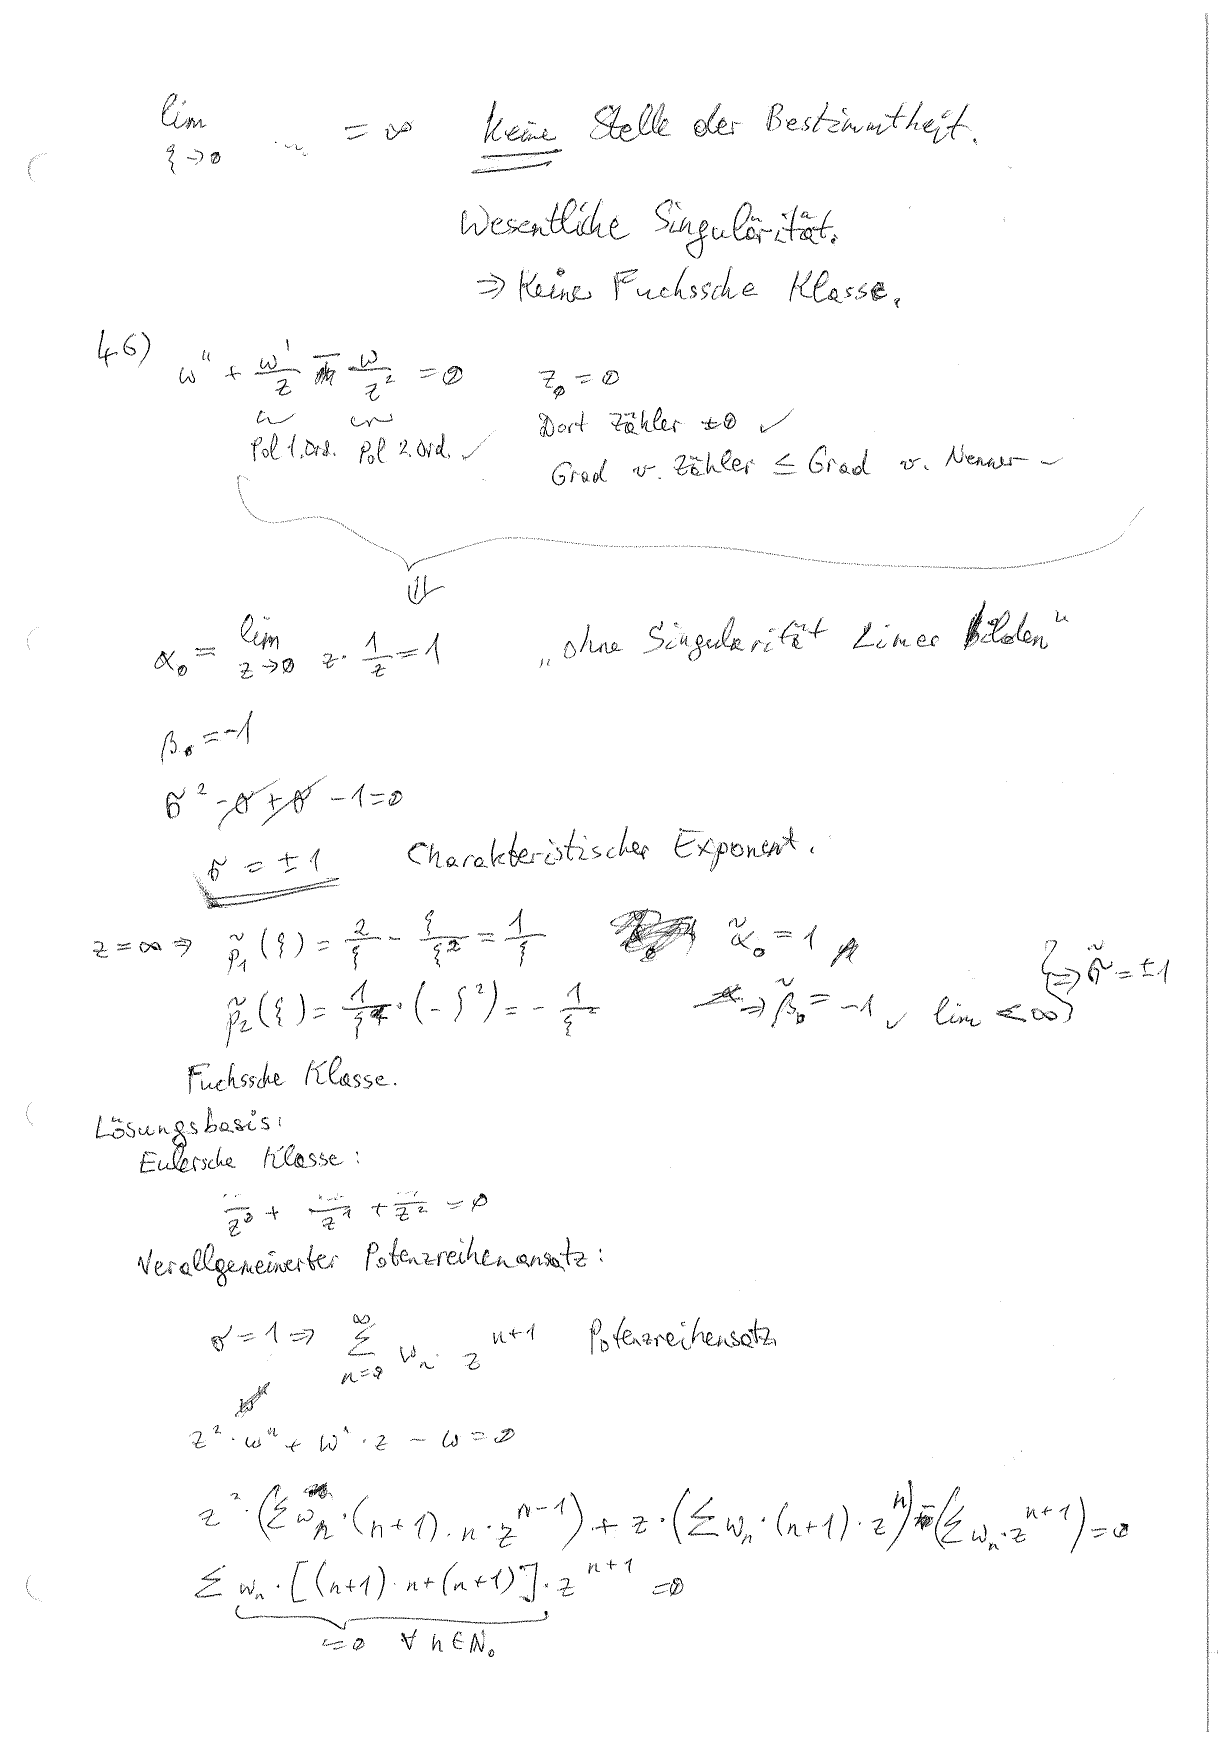 lim ξ→0 ... = ∞ Keine Stelle der Bestimmtheit.
Wesentliche Singularität.
⇒ Keine Fuchssche Klasse.
46) w'' + w'/z - w/z² = 0 z₀ = 0
Pol 1. Ord. Pol 2. Ord. ✓ Dort Zähler ≠ 0 ✓
Grad v. Zähler ≤ Grad v. Nenner ✓
⇓
α₀ = lim z→0 z · 1/z = 1 „ohne Singularität Limes bilden"
β₀ = -1
σ² - σ + σ - 1 = 0
σ = ±1 Charakteristischer Exponent.
z = ∞ ⇒ p̃₁(ξ) = 2/ξ - ξ/ξ² = 1/ξ α̃₀ = 1
p̃₂(ξ) = 1/ξ⁴ · (-ξ²) = - 1/ξ² ⇒ β̃₀ = -1 ✓ lim < ∞ } ⇒ σ̃ = ±1
Fuchssche Klasse.
Lösungsbasis:
Eulersche Klasse:
.../z⁰ + .../z¹ + .../z² = 0
Verallgemeinerter Potenzreihenansatz:
σ = 1 ⇒ ∑ n=0 ∞ wₙ · z^(n+1) Potenzreihensatz
z² · w'' + w' · z - w = 0
z² · (∑ wₙ · (n+1) · n · z^(n-1)) + z · (∑ wₙ · (n+1) · z^n) - (∑ wₙ · z^(n+1)) = 0
∑ wₙ · [(n+1) · n + (n+1)] · z^(n+1) = 0
= 0 ∀ n ∈ N₀